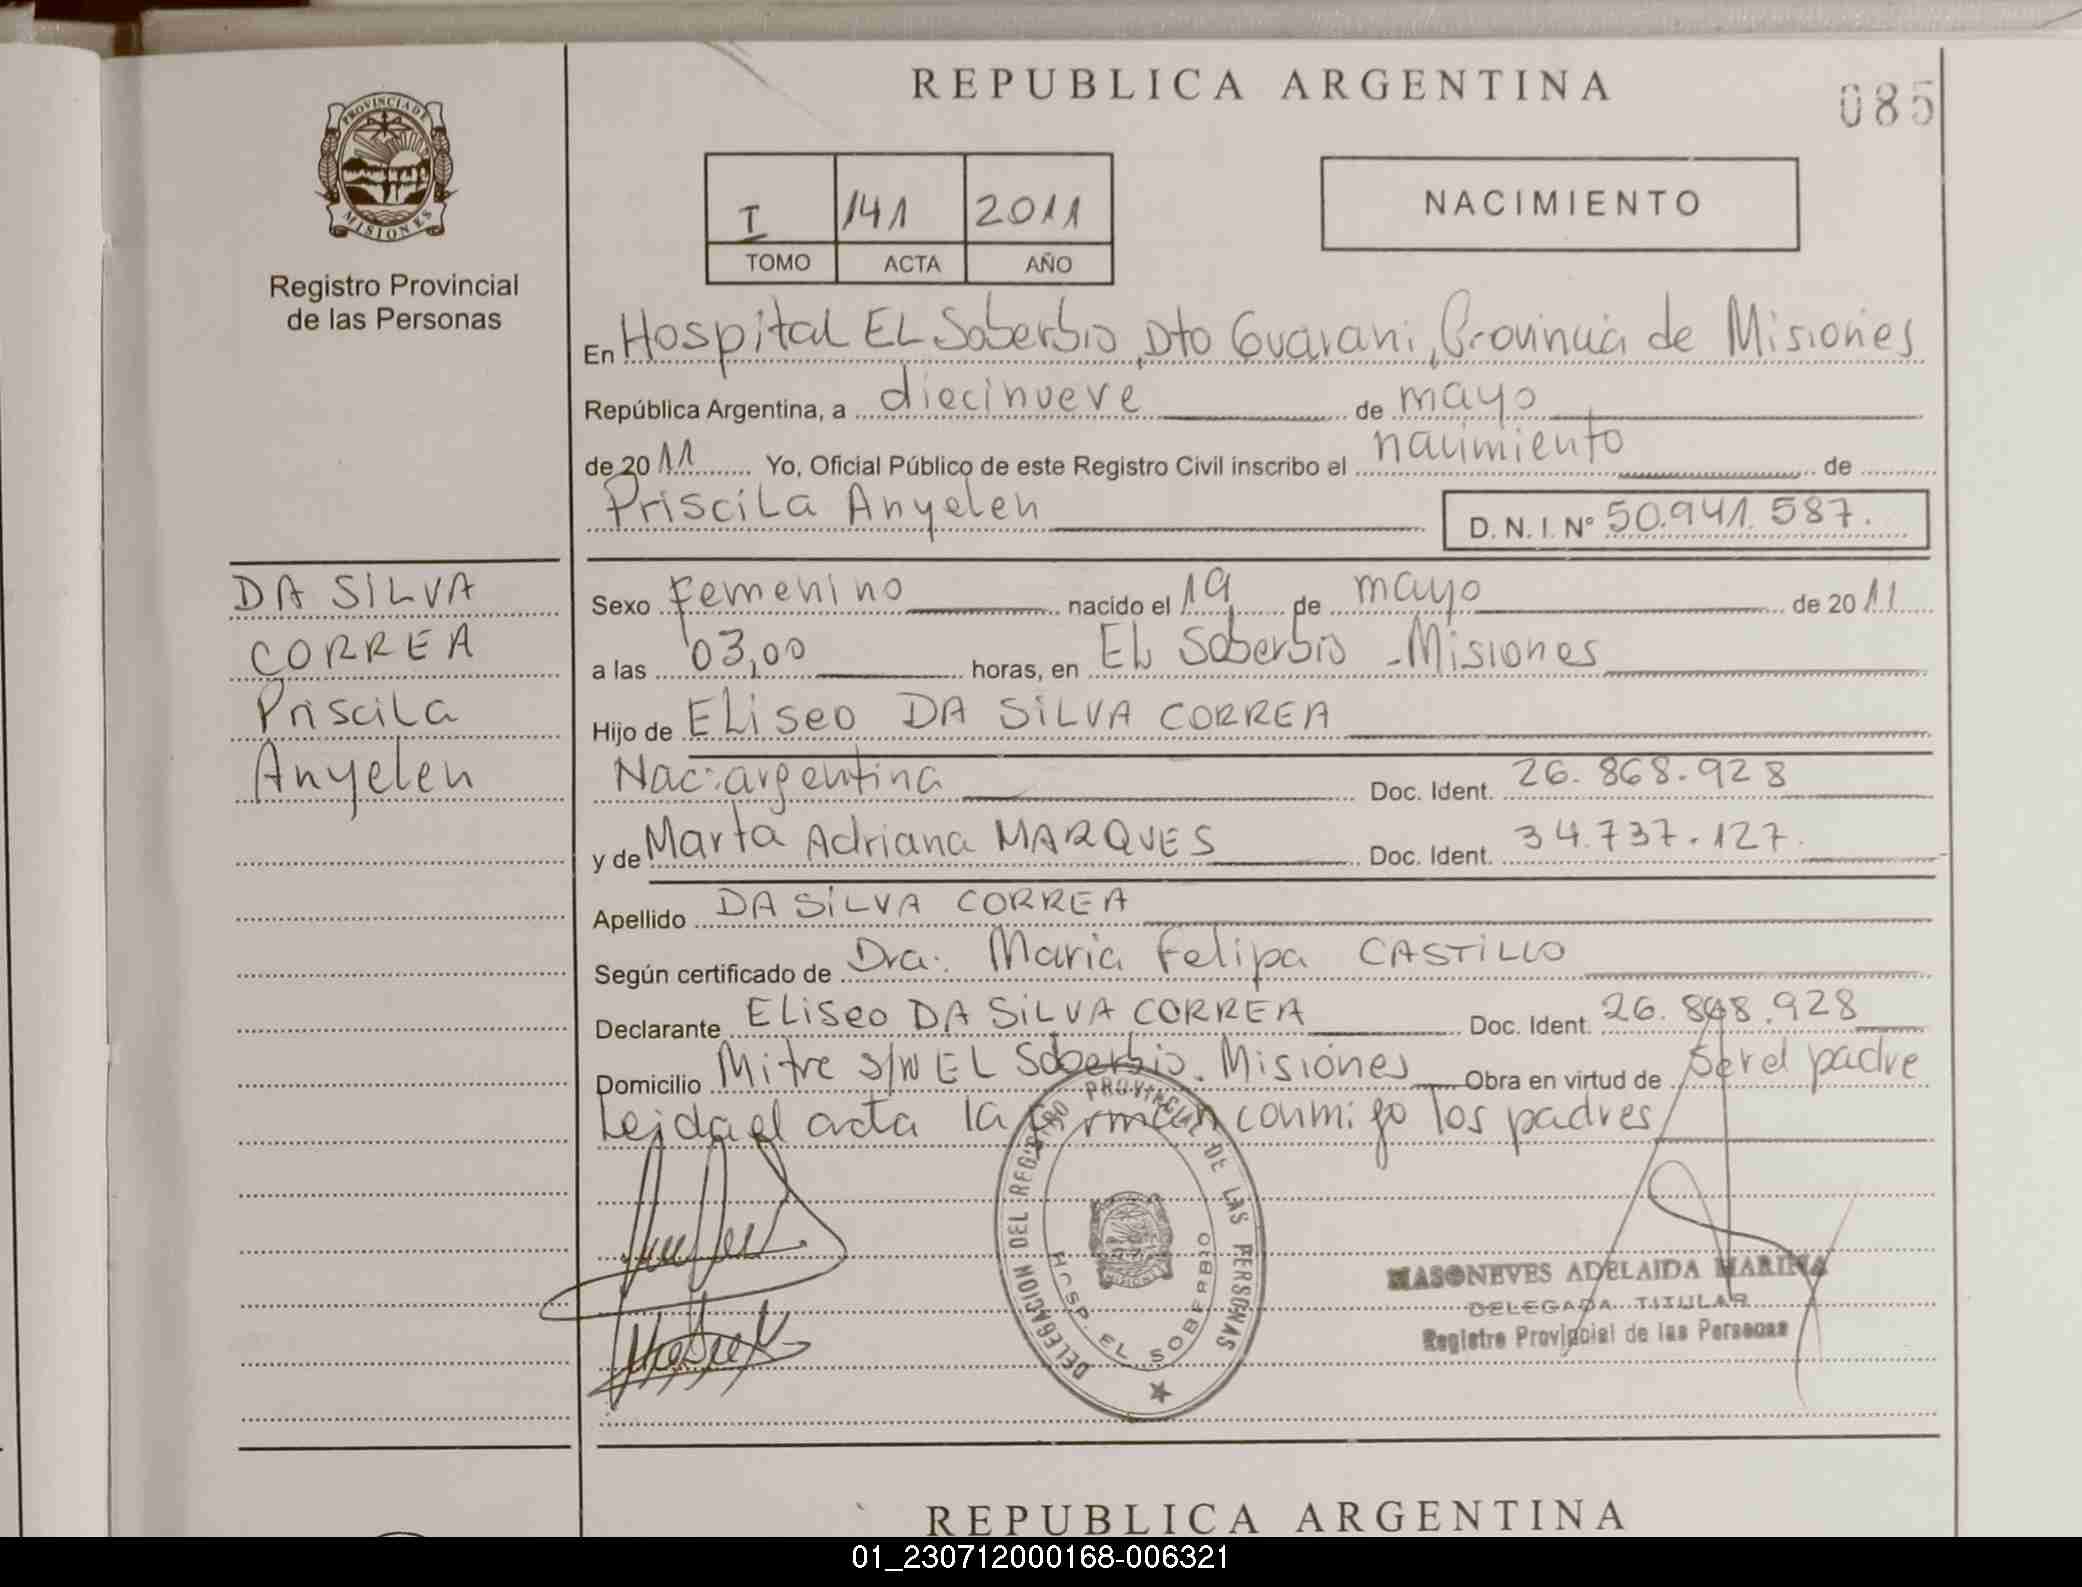 REPUBLICA ARGENTINA
085
PROVINCIA DE
MISIONES
Registro Provincial
de las Personas
I 141 2011
TOMO ACTA AÑO
NACIMIENTO
En Hospital EL Soberbio, Dto Guarani, Provincia de Misiones
República Argentina, a diecinueve de mayo
de 2011 Yo, Oficial Público de este Registro Civil inscribo el nacimiento de
Priscila Anyelen D. N. I. Nº 50.941.587.
DA SILVA
CORREA
Priscila
Anyelen
Sexo Femenino nacido el 19 de mayo de 2011
a las 03,00 horas, en EL Soberbio - Misiones
Hijo de ELiseo DA SILVA CORREA
Nac: argentina Doc. Ident. 26.868.928
y de Marta Adriana MARQUES Doc. Ident. 34.737.127.
Apellido DA SILVA CORREA
Según certificado de Dra. Maria Felipa CASTILLO
Declarante ELiseo DA SILVA CORREA Doc. Ident. 26.868.928
Domicilio Mitre s/N EL Soberbio. Misiones Obra en virtud de ser el padre
Leida el acta la firman conmigo los padres
DELEGACION DEL REGISTRO PROVINCIAL DE LAS PERSONAS
HOSP. EL SOBERBIO
MASONEVES ADELAIDA MARINA
DELEGADA TITULAR
Registro Provincial de las Personas
REPUBLICA ARGENTINA
01_230712000168-006321